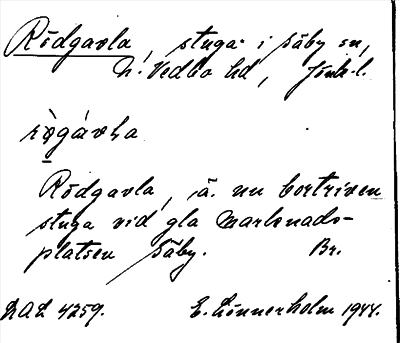 Rödgavla, stuga i Säby sn,
N. Vedbo hd, Jönk. l.
rö̀gávla
Rödgavla, ä. nu bortriven
stuga vid gla marknads-
platsen Säby. Br.
DAL 4259. E. Linnerholm 1944.